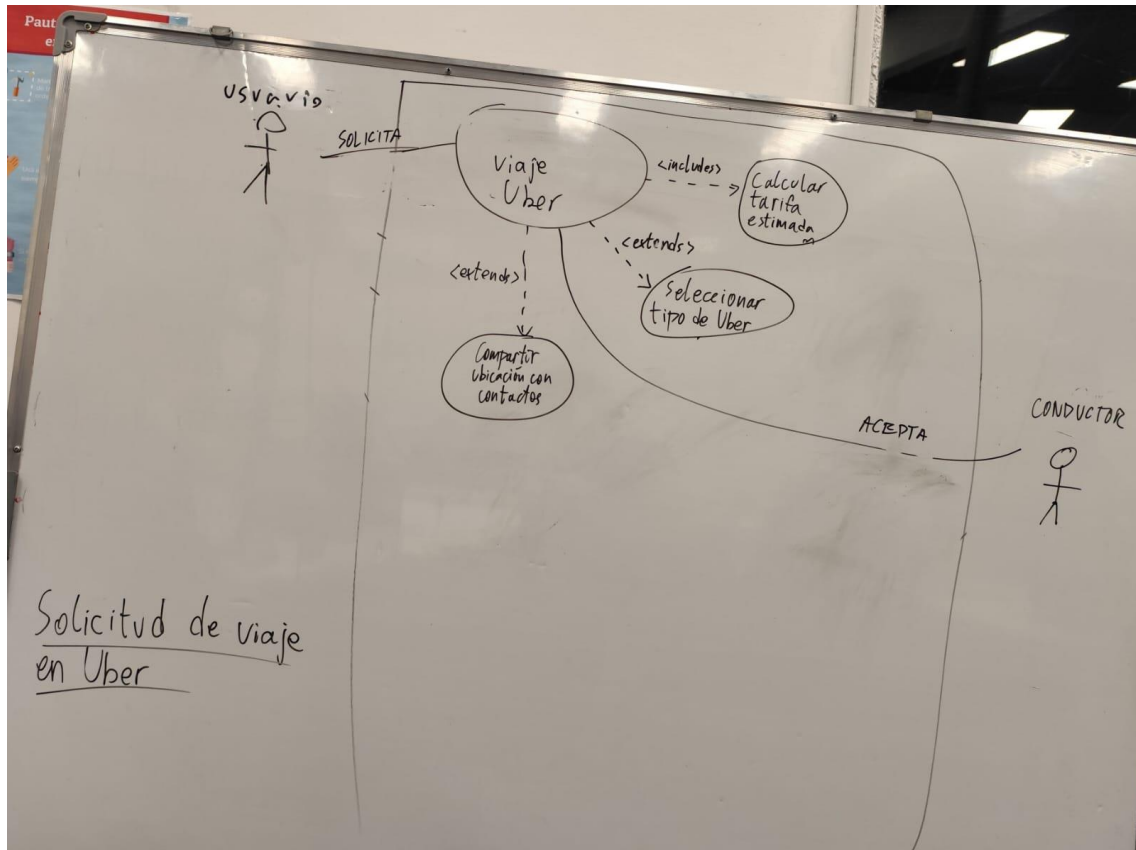 Paut
e
usuario
SOLICITA
Viaje
Uber
<includes>
Calcular
tarifa
estimada
<extends>
Seleccionar
tipo de Uber
<extends>
Compartir
ubicación con
contactos
ACEPTA
CONDUCTOR
Solicitud de viaje
en Uber